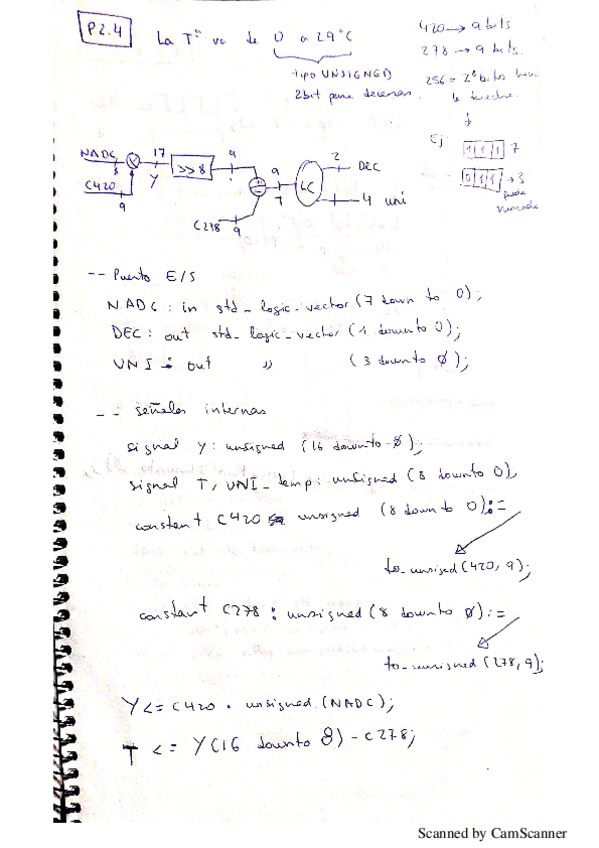 P2.4
La Tª va de 0 a 29°C
420 → 9 bits
278 → 9 bits.
tipo UNSIGNED
2bit para decenas.
256 = 2⁸ bits
Ej
1 1 1 7
0 1 1 → 3
NADC
8
17
Y
>>8
9
9
7
LC
2
DEC
4 uni
C420
9
C278
9
-- Puerto E/S
NADC : in std_logic_vector (7 down to 0);
DEC : out std_logic_vector (1 downto 0);
UNI : out " (3 downto 0);
-- señales internas
signal Y: unsigned (16 downto 0);
signal T, UNI_temp: unsigned (8 downto 0),
constant C420 unsigned (8 down to 0):=
to_unsiged (420, 9);
constant C278 : unsigned (8 downto 0) :=
to_unsigned (278, 9);
Y <= C420 * unsigned (NADC);
T <= Y(16 downto 8) - C278;
Scanned by CamScanner